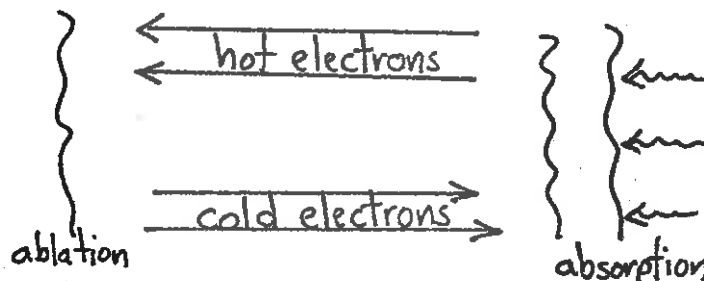 hot electrons
cold electrons
ablation
absorption